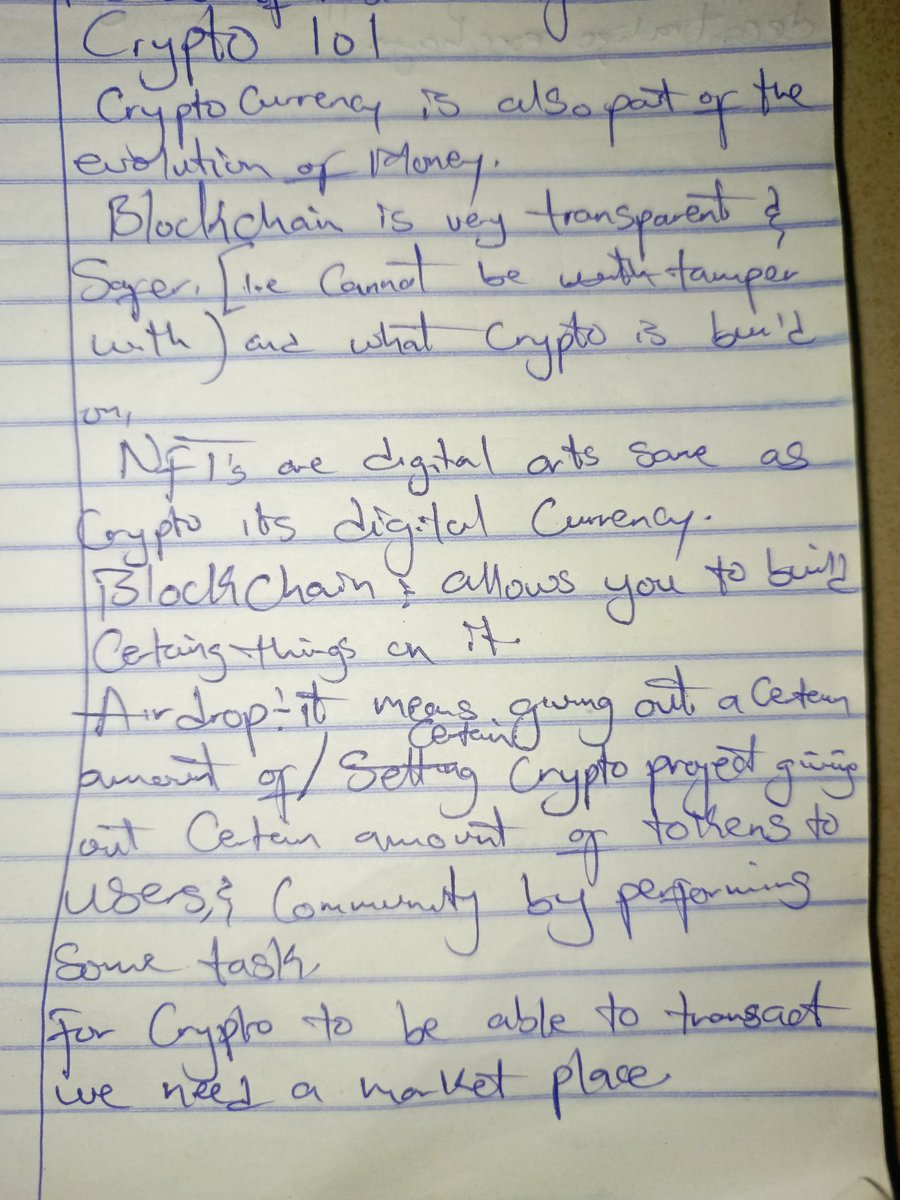 Crypto 101
Crypto Currency is also part of the
evolution of Money.
Blockchain is very transparent &
Safer. [i.e Cannot be with tamper
with) and what Crypto is build
on,
NFT's are digital arts same as
Crypto its digital Currency.
Blockchain : allows you to build
Certaing things on it.
Airdrop :- it means giving out a Certain
Certain
amount of / Setting Crypto project giving
out Certain amount of tokens to
users, & Community by performing
Some task
For Crypto to be able to transact
we need a market place